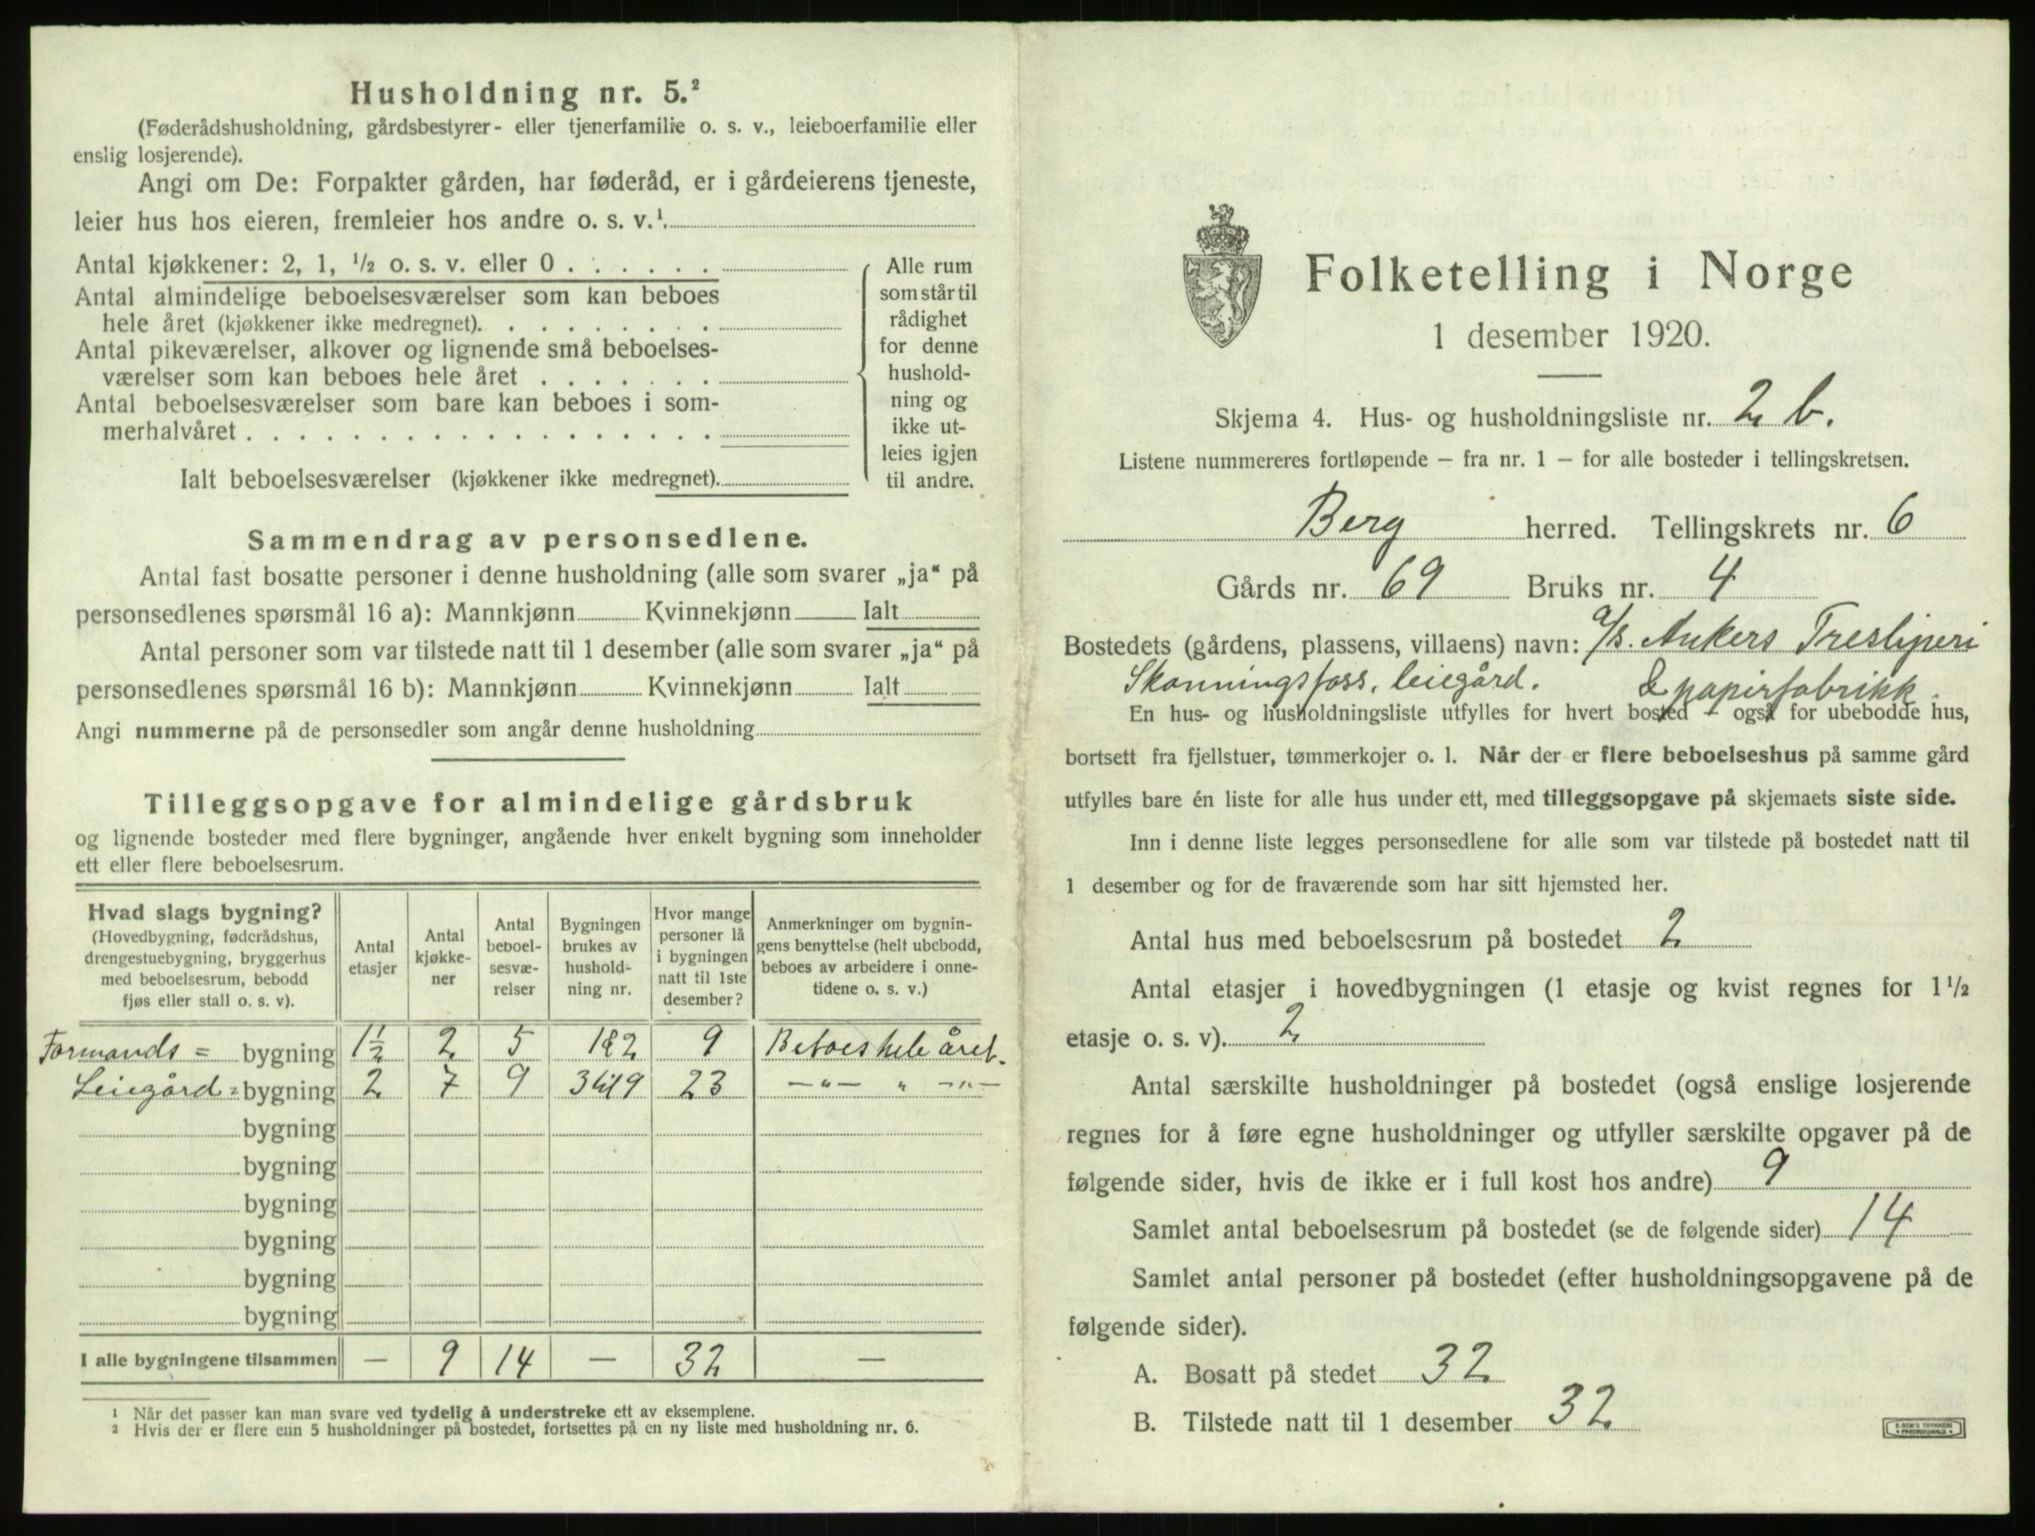 Husholdning nr. 5.²
(Føderådshusholdning, gårdsbestyrer- eller tjenerfamilie o. s. v., leieboerfamilie eller
enslig losjerende).
Angi om De: Forpakter gården, har føderåd, er i gårdeierens tjeneste,
leier hus hos eieren, fremleier hos andre o. s. v.¹.
Antal kjøkkener: 2, 1, ½ o. s. v. eller 0
Antal almindelige beboelsesværelser som kan beboes
hele året (kjøkkener ikke medregnet).
Antal pikeværelser, alkover og lignende små beboelses-
værelser som kan beboes hele året
Antal beboelsesværelser som bare kan beboes i som-
merhalvåret
Ialt beboelsesværelser (kjøkkener ikke medregnet).
Alle rum
som står til
rådighet
for denne
hushold-
ning og
ikke ut-
leies igjen
til andre.
Sammendrag av personsedlene.
Antal fast bosatte personer i denne husholdning (alle som svarer „ja“ på
personsedlenes spørsmål 16 a): Mannkjønn Kvinnekjønn Ialt
Antal personer som var tilstede natt til 1 desember (alle som svarer „ja“ på
personsedlenes spørsmål 16 b): Mannkjønn Kvinnekjønn Ialt
Angi nummerne på de personsedler som angår denne husholdning
Tilleggsopgave for almindelige gårdsbruk
og lignende bosteder med flere bygninger, angående hver enkelt bygning som inneholder
ett eller flere beboelsesrum.
Hvad slags bygning?
(Hovedbygning, føderådshus,
drengestuebygning, bryggerhus
med beboelsesrum, bebodd
fjøs eller stall o. s. v).
Antal
etasjer
Antal
kjøkke-
ner
Antal
beboel-
sesvæ-
relser
Bygningen
brukes av
hushold-
ning nr.
Hvor mange
personer lå
i bygningen
natt til 1ste
desember?
Anmerkninger om bygnin-
gens benyttelse (helt ubebodd,
beboes av arbeidere i onne-
tidene o. s. v.)
Formands= bygning 1½ 2 5 1&2 9 Beboes hele året.
Leiegård= bygning 2 7 9 3 til 9 23 —„— „ —„—
bygning
bygning
bygning
bygning
bygning
bygning
I alle bygningene tilsammen — 9 14 — 32 —
¹ Når det passer kan man svare ved tydelig å understreke ett av eksemplene.
² Hvis der er flere enn 5 husholdninger på bostedet, fortsettes på en ny liste med husholdning nr. 6.
Folketelling i Norge
1 desember 1920.
Skjema 4. Hus- og husholdningsliste nr. 2 b.
Listene nummereres fortløpende – fra nr. 1 – for alle bosteder i tellingskretsen.
Berg herred. Tellingskrets nr. 6
Gårds nr. 69 Bruks nr. 4
Bostedets (gårdens, plassens, villaens) navn: A/S. Ankers Tresliperi
Skonningsfoss, leiegård. & papirfabrikk.
En hus- og husholdningsliste utfylles for hvert bosted – også for ubebodde hus,
bortsett fra fjellstuer, tømmerkojer o. l. Når der er flere beboelseshus på samme gård
utfylles bare én liste for alle hus under ett, med tilleggsopgave på skjemaets siste side.
Inn i denne liste legges personsedlene for alle som var tilstede på bostedet natt til
1 desember og for de fraværende som har sitt hjemsted her.
Antal hus med beboelsesrum på bostedet 2
Antal etasjer i hovedbygningen (1 etasje og kvist regnes for 1½
etasje o. s. v). 2
Antal særskilte husholdninger på bostedet (også enslige losjerende
regnes for å føre egne husholdninger og utfyller særskilte opgaver på de
følgende sider, hvis de ikke er i full kost hos andre) 9
Samlet antal beboelsesrum på bostedet (se de følgende sider) 14
Samlet antal personer på bostedet (efter husholdningsopgavene på de
følgende sider).
A. Bosatt på stedet 32
B. Tilstede natt til 1 desember 32